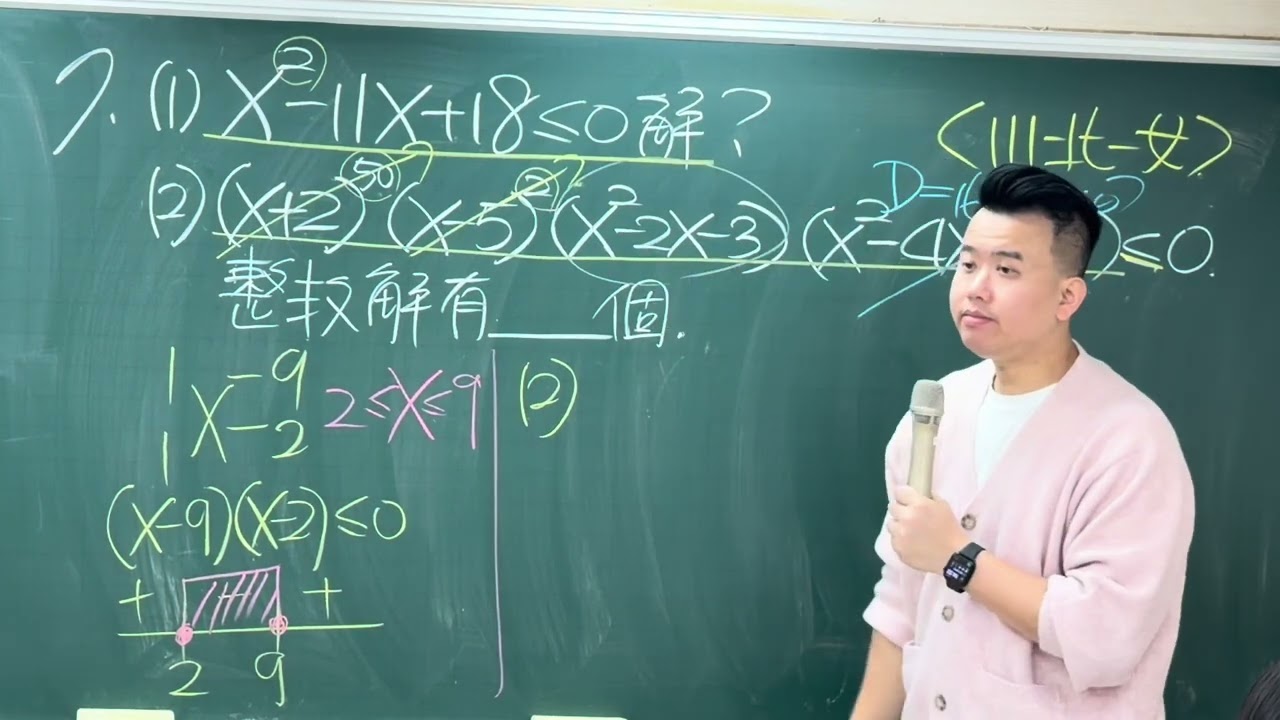 7. (1) X²-11X+18≤0解?
(2) (X+2)⁵⁰(X-5)²(X²-2X-3)(X²-4X )≤0.
整数解有____個.
<111北一女>
D=16
1 X -9
1 X -2
2≤X≤9
(X-9)(X-2)≤0
+ - +
2 9
(2)